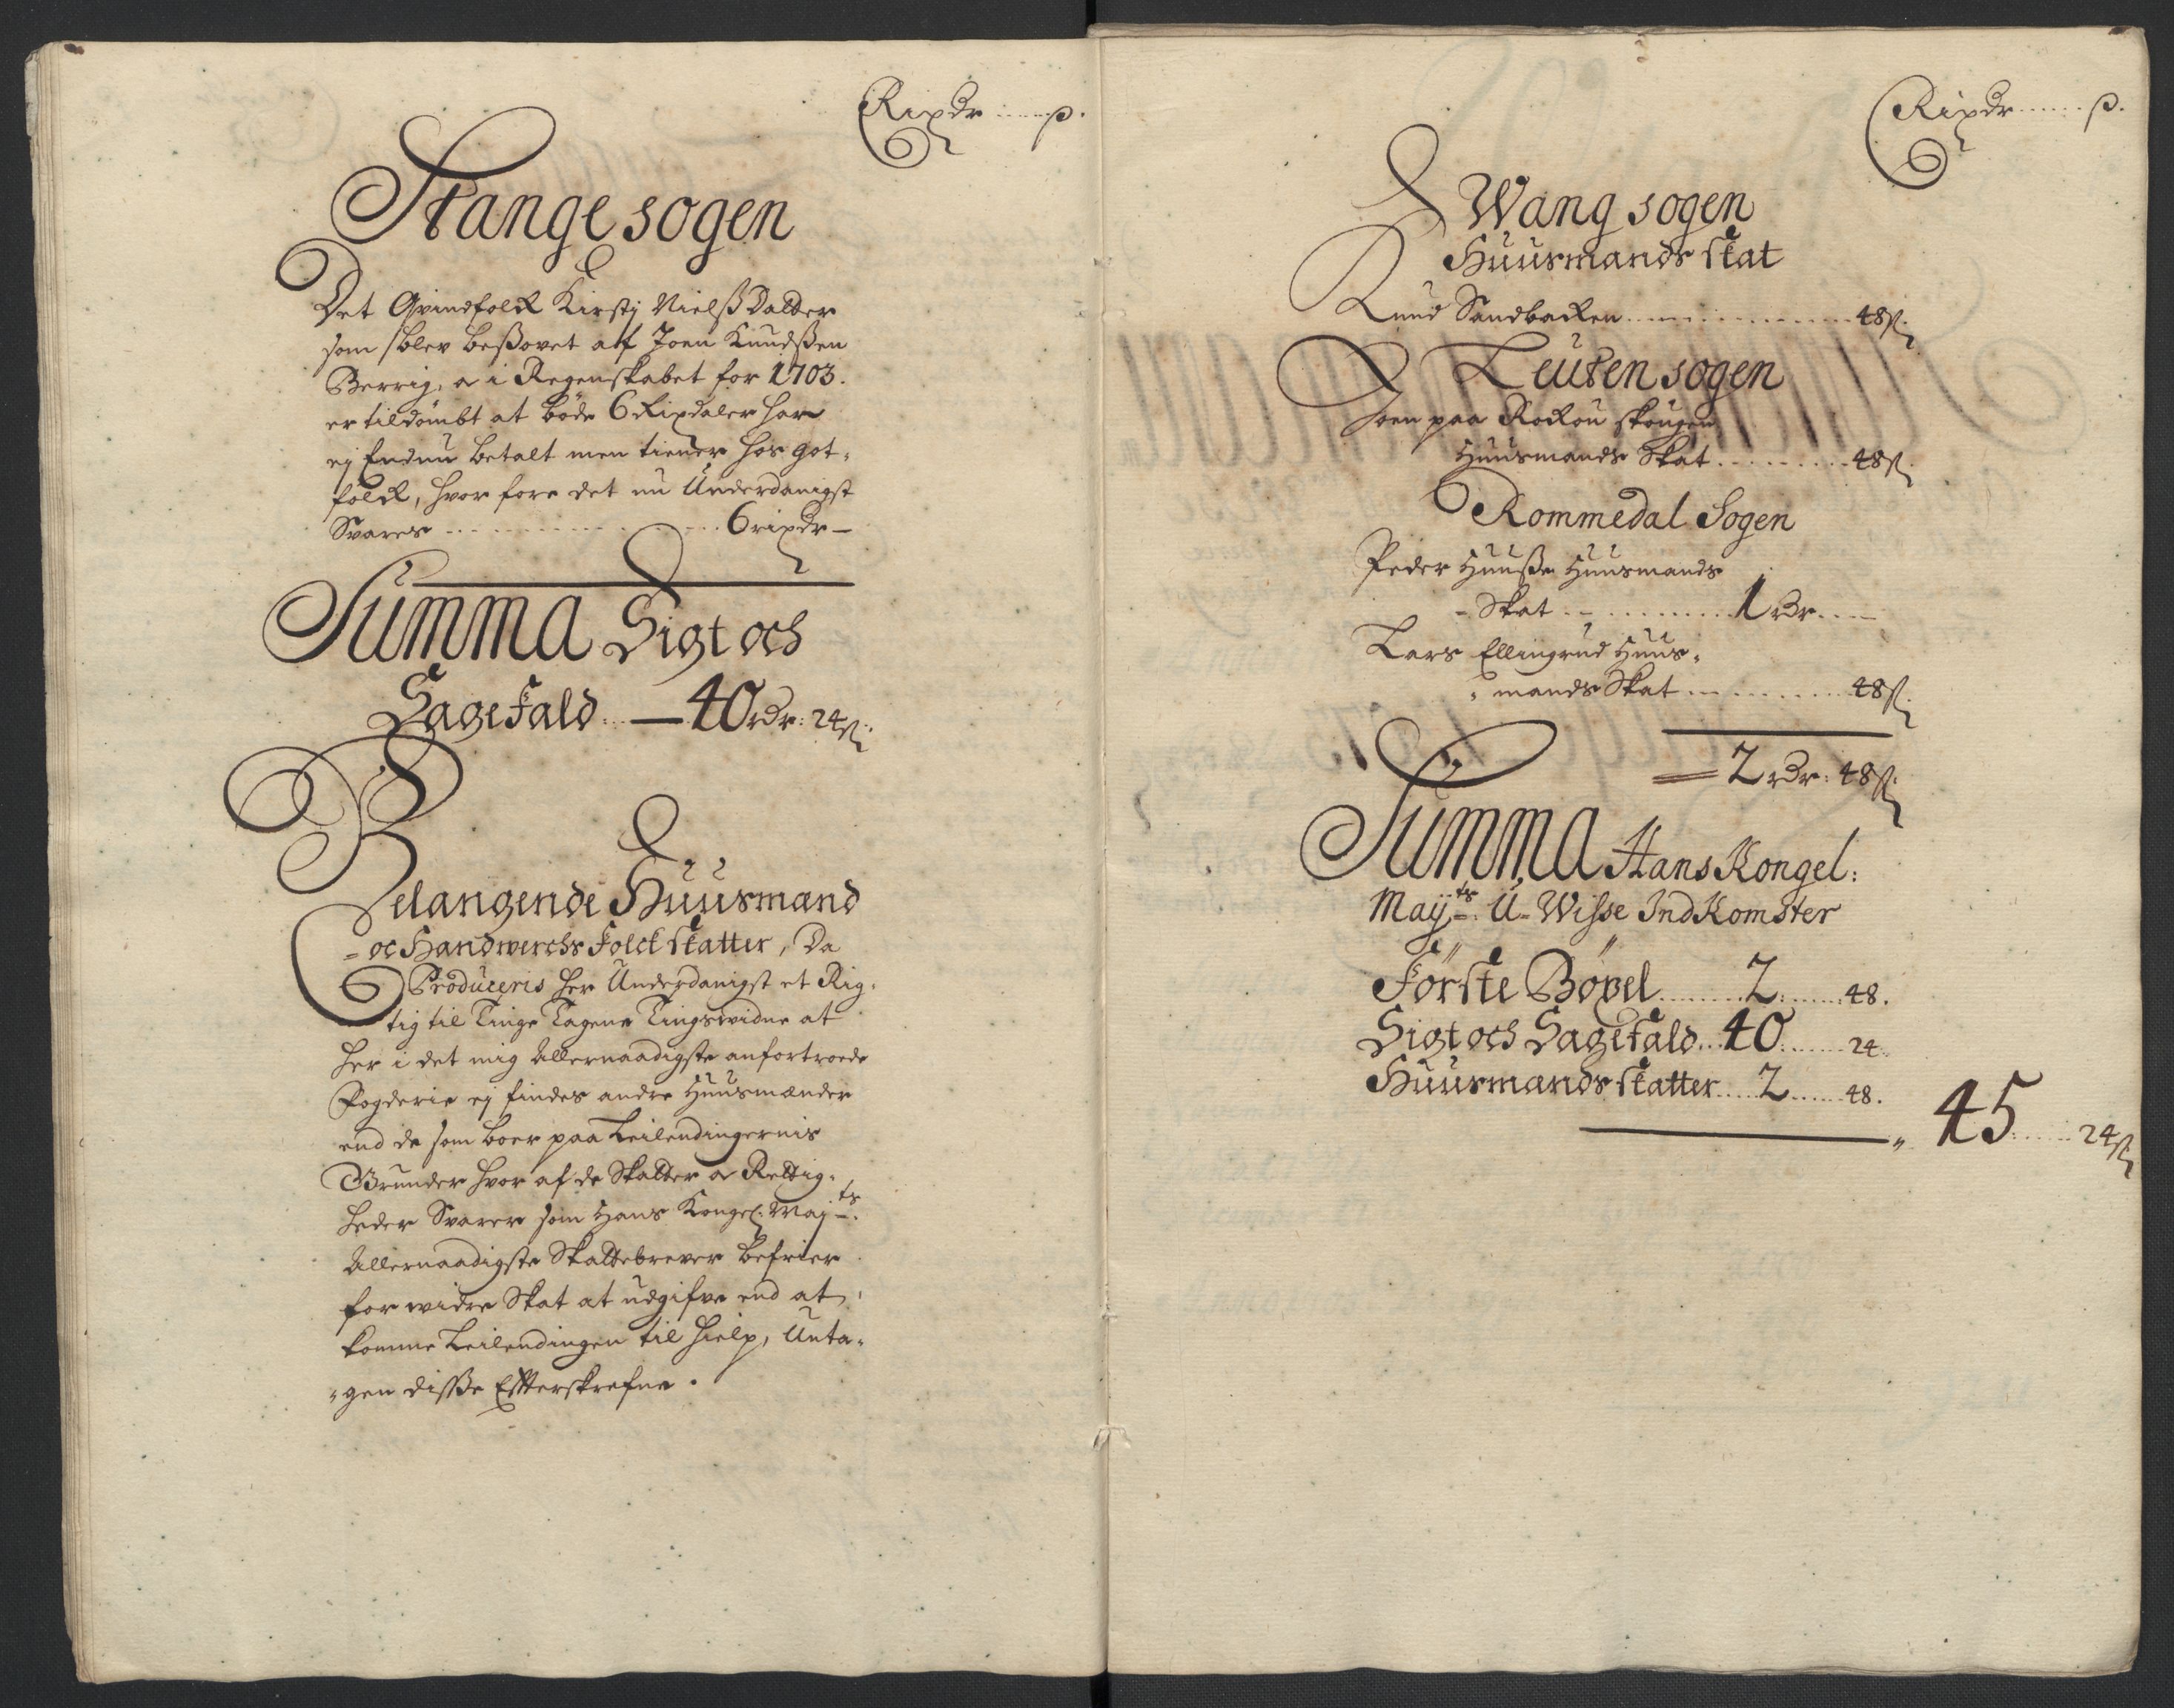 Rixdr ..... ß.
Stange sogen
Det Qvindfolck Kirstj Nielß Datter
som blev beßovet aff Joen Knudßen
Berrig, a i Regenskabet for 1703.
er tildömbt at böde 6 Rixdaler har
ej Endnu betalt men tiener hos got-
folck, hvor fore det nu Underdanigst
Svares ................ 6 rixdr —
Summa Sigt och
Sagefald ... — 40 rdr: 24 ß:
Belangende Huusmænd
- oc Handwerchs Folck skatter, Da
Produceris her Underdanigst et Rig-
tig til Tinge Tagene Tingswidne at
her i det mig Allernaadigste anfortroede
Fogderie ej findes andre Huusmænder
end de som boer paa Leilendingernis
Grunder hvor af de Skatter a Rettig-
heder Svarer som Hans Kongel: Maj-ts.
Allernaadigste Skattebrever befrier
for widre Skat at udgifve end at
komme Leilendingen til hielp, Unta-
- gen disße Effterskrefne.
Rixdr ..... ß.
Wang sogen
Huusmands skat
Knud Sandbacken ............ 48 ß.
Leuten sogen
Joen paa Rockou skougen
Huusmands Skat ......... 48 ß.
Rommedal Sogen
Peder Huuße Huusmands
- Skat ........... 1 rdr ....
Lars Ellingrud Huus-
- mands Skat ........... 48 ß.
= 2 rdr: 48 ß.
Summa Hans Kongel:
Maij-ts. U-Wisse IndKomster
Förste Böxel ......... 2 ....... 48.
Sigt och Sagefald ... 40 ....... 24.
Huusmands skatter .... 2 ...... 48.
" 45 ...... 24 ß